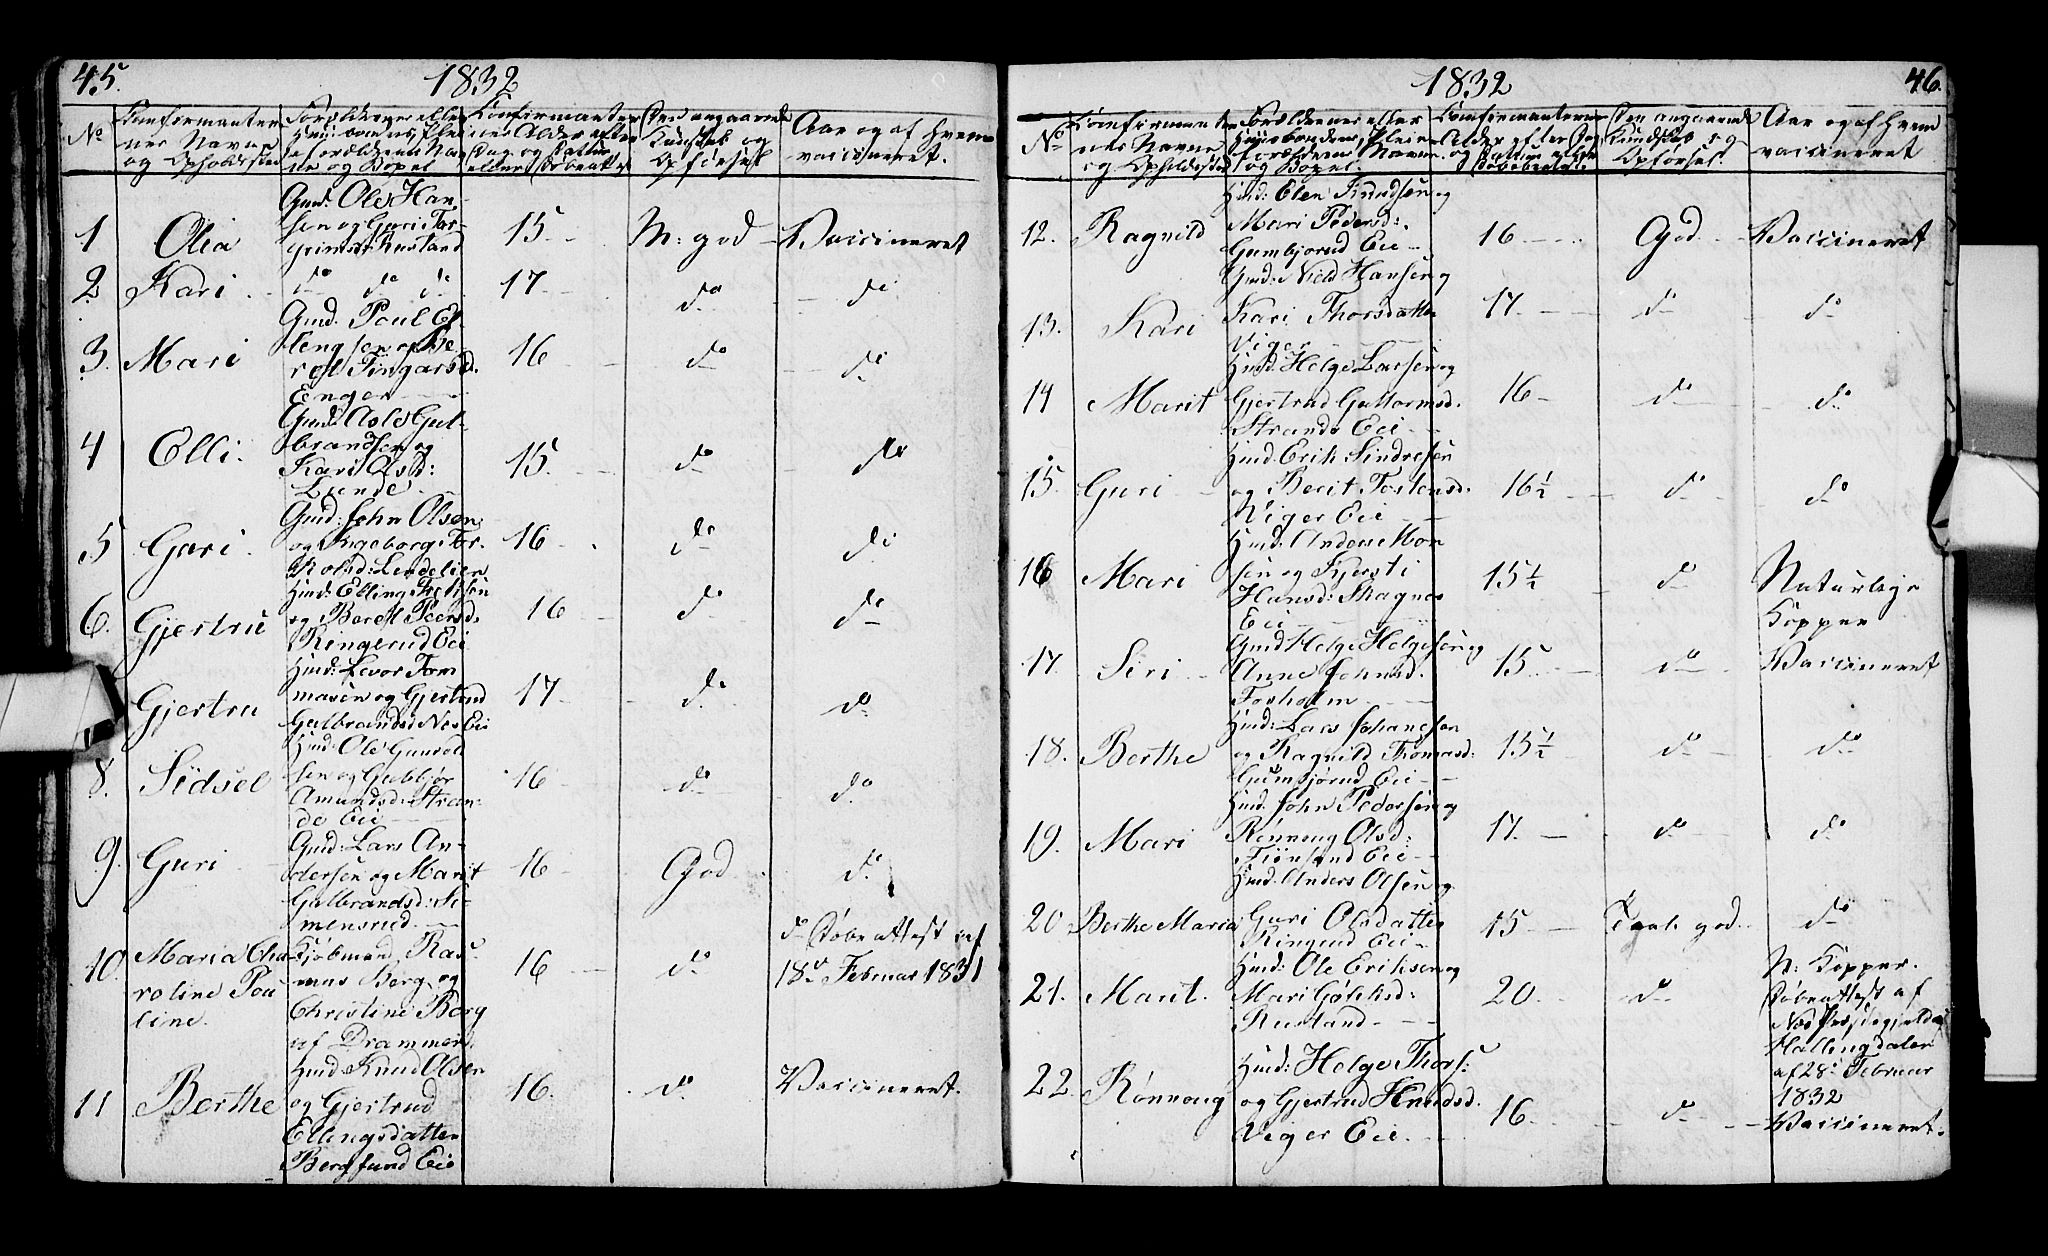 45.
1832
No
Confirmanter
nes Navne
og Opholdsted
Forældrenes eller
Huusbondens, Pleie
forældrenes Nav
ne og Bopel
Confirmanter
nes Alder efter
Dag og Datum
efter Døbeattest
Den angaaende
Kundskab og
Opførsel
Aar og af hvem
vaccineret.
1
Olia
Gmd: Ole Han-
sen og Guri Tor-
grimsd: Rustand
15
M: god
Vaccineret
2
Kari
do do do
17
do
do
3.
Mari
Gmd: Poul El-
lengsen og Be-
rit Fingarsd.
Enger
16
do
do
4
Elli.
Gmd: Asle Gul-
brandsen og
Kari Olsd:
Lunde
15.
do
do
5
Guri.
Gmd: John Olsen
og Ingeborg Tor-
kolsd: Lindelien
16
do
do
6.
Gjertru
Hmd: Elling Eriksen
og Berit Peersd.
Ringerud Eie
16
do
do
Gjertru
Hmd: Levor Tom
masen og Gjertrud
Gulbrandsd: Næs Eie
17
do
do
8.
Sidsel
Hmd: Ole Gunvold
sen og Gubbjør
Amundsd: Stran-
de Eie
16
do
do
9.
Guri
Gmd: Lars An-
dersen og Marit
Gulbrandsd: Si-
mensrud
16
God
do
10.
Maria Cha-
roline Pou
line.
Kjøbmand Ras-
mus Berg og
Christine Berg
af Drammen
16
do
do Døbeattest af
18de Februar 1831
11
Berthe
Hmd: Knud Olsen
og Gjertrud
Ellingsdatter
Bergsund Eie
16.
do
Vaccineret.
1832
46.
No
Confirmanter
nes Navne
og Opholdsted
Forældrenes eller
Huusbondens, Pleie
forældrenes Navne
og Bopel.
Confirmanternes
Alder efter Dag
og Datum efter
Døbeattest
Den angaaende
Kundskab og
Opførsel.
Aar og af hvem
vaccineret
12.
Ragnild
Hmd: Elen Knudsen og
Mari Pedersd:
Gumbjørud Eie
16
God
Vaccineret
13.
Kari
Gmd: Niels Hansen og
Kari Thorsdatter
Viger
17.
do
do
14
Marit
Hmd: Helge Larsen og
Gjertrud Guttormsd.
Strande Eie
16
do
do
15.
Guri
Hmd: Erik Sindresen
og Berit Tostensd.
Viger Eie
16½
do
do
16
Mari
Hmd: Anders Mon
sen og Kjersti
Hansd: Skagnes
Eie
15½
do
Naturlige
Kopper
17.
Siri
Gmd Helge Helgesen og
Anne Johnsd.
Forholm
15
do
Vaccineret
18.
Berthe
Hmd: Lars Johannsen
og Ragnild Thomasd:
Gumbjørud Eie
15½
do
do
19.
Mari
Hmd: John Pedersen og
Rønnoug Olsd:
Tiønsand Eie
17.
do
do
20.
Berthe Maria
Hmd: Anders Olsen og
Guri Olsdatter
Ringerud Eie
15
Taal. god.
do
21.
Marit.
Hmd: Ole Eriksen og
Mari Gulliksd:
Rustand
20
do
N: Kopper.
Døbeattest af
Næs Præstegjeld
Hallingdalen
af 28de Februar
1832
22.
Rønnoug
Hmd: Helge Thors:
og Gjertrud Knudsd.
Viger Eie.
16
do
Vaccineret.